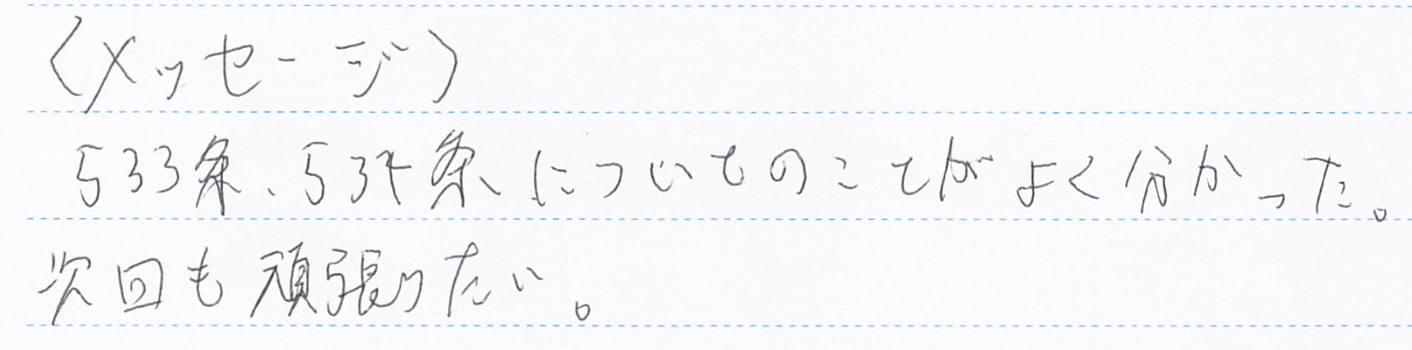 〈メッセージ〉
533条、534条についてのことがよく分かった。
次回も頑張りたい。